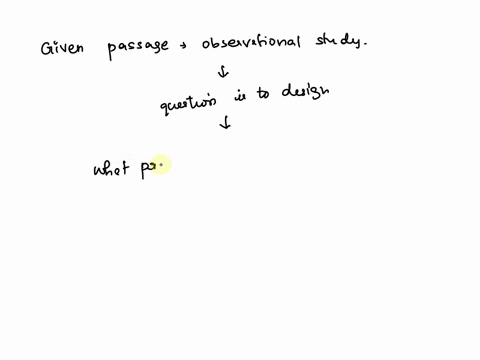 Given passage → observational study.
↓
question is to design
↓
what pr